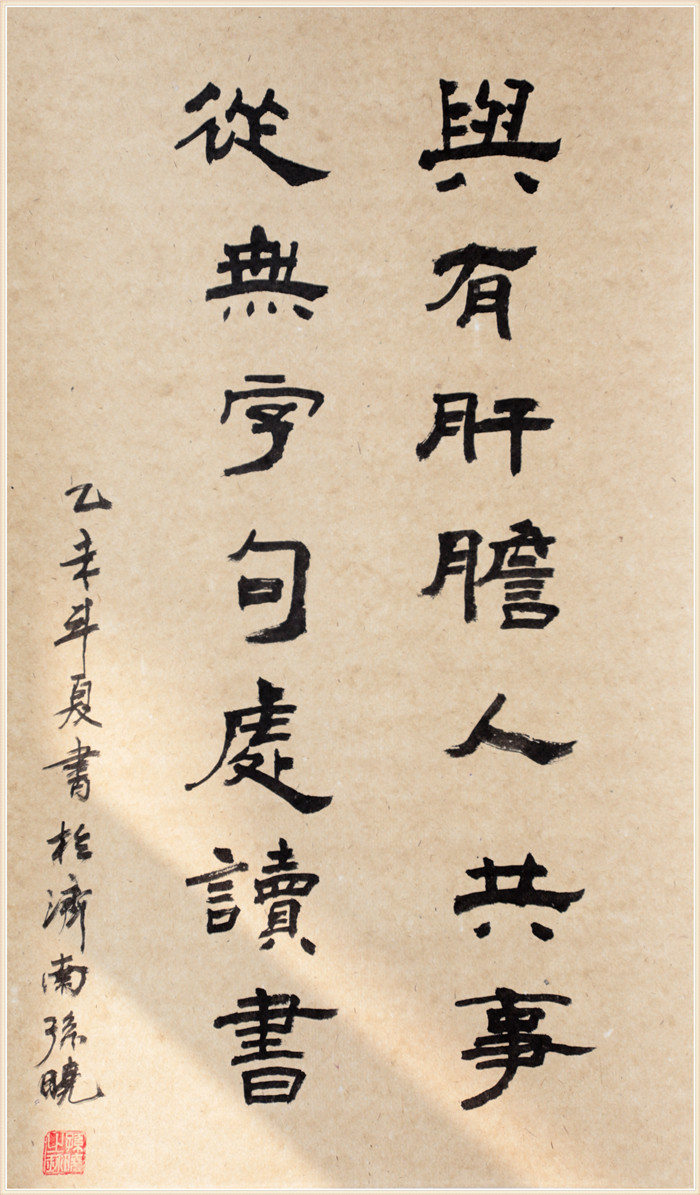 與有肝膽人共事
從無字句處讀書
乙未年夏書於濟南孫曉
孫曉之印